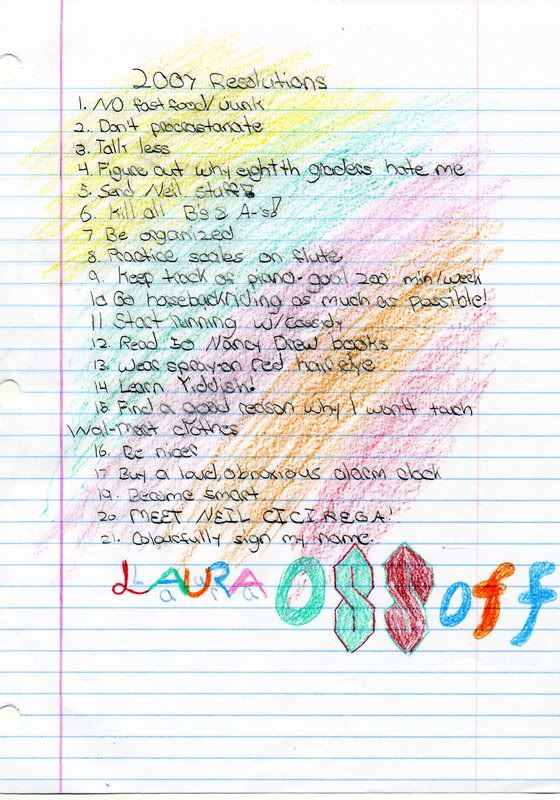 2007 Resolutions
1. NO fast food/junk
2. Don't procrastanate
3. Talk less
4. Figure out why eighth graders hate me
5. Send Neil stuff!
6. Kill all B's & A-'s!
7 Be organized
8. Practice scales on flute
9. Keep track of piano-goal 200 min/week
10 Go horseback riding as much as possible!
11 Start running w/Cassidy
12. Read 50 Nancy Drew books
13. Wear spray-on red hair dye
14. Learn Yiddish!
15. Find a good reason why I won't touch
Wal-Mart clothes
16. Be nicer
17. Buy a loud, obnoxious alarm clock
19. Become smart
20. MEET NEIL CICIREGA!
21. Colourfully sign my name
LAURA OSSoff
Laura